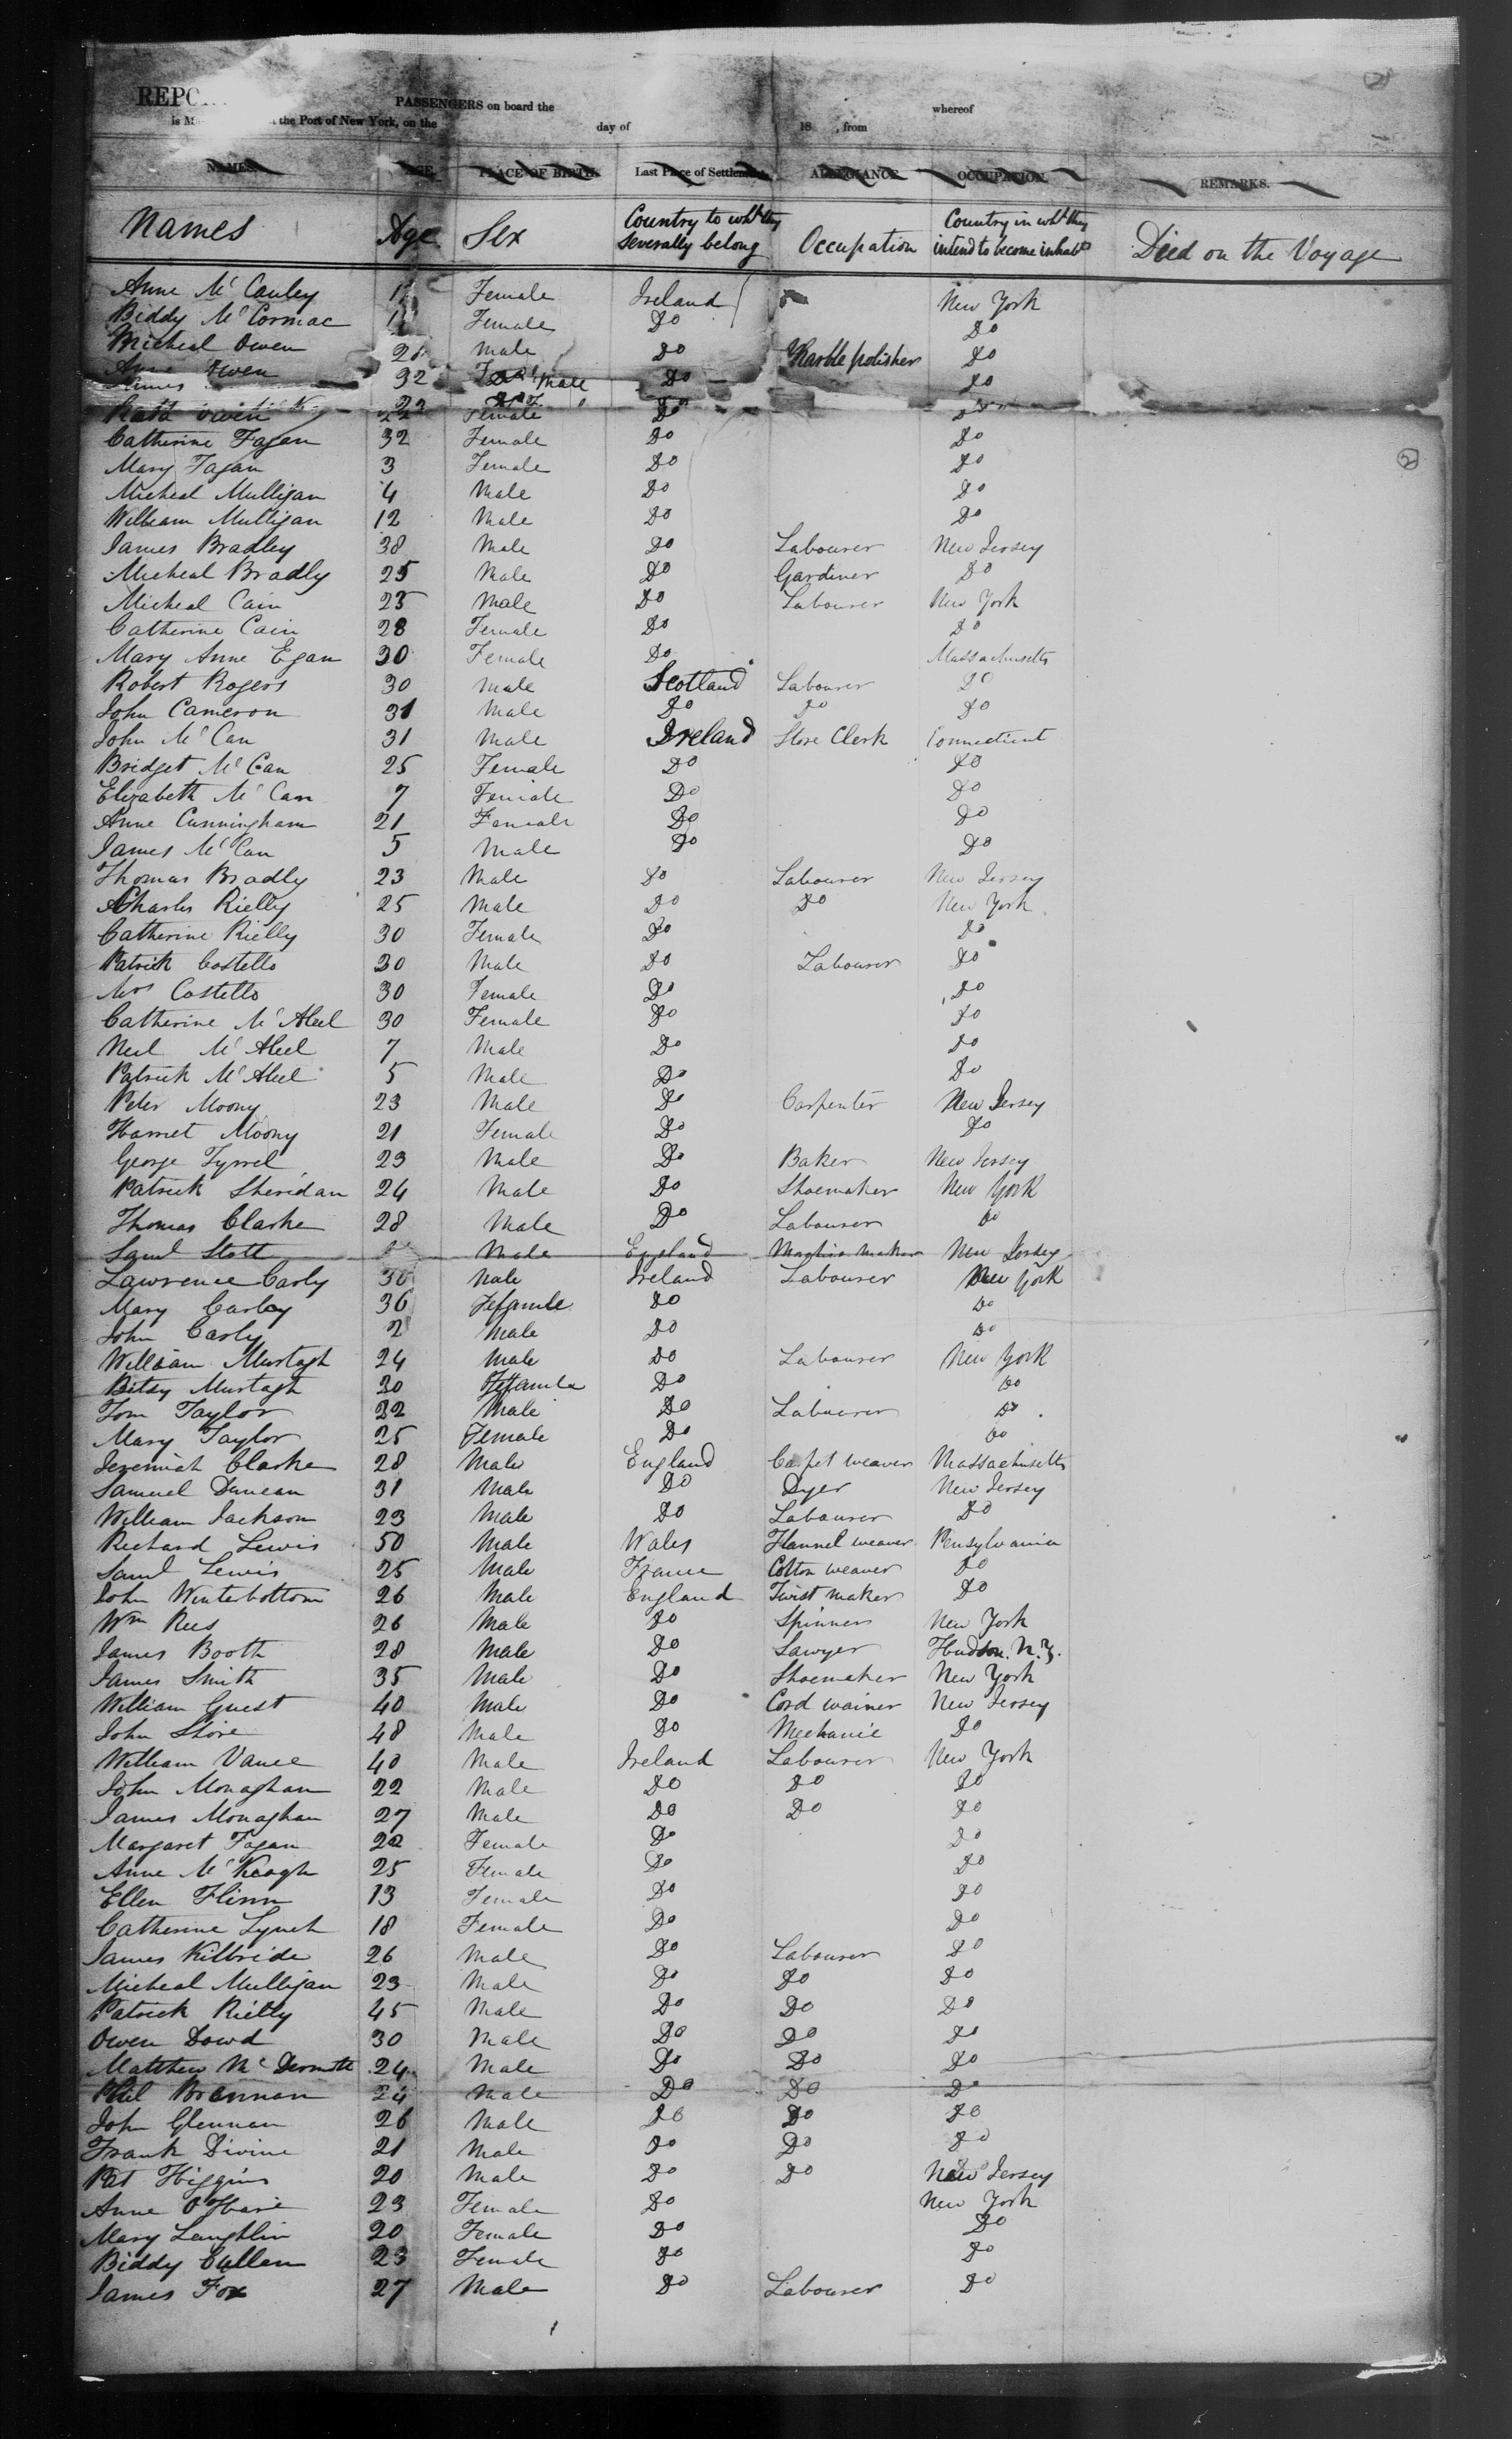 REPO PASSENGERS on board the whereof
the Port of New York, on the day of 18 , from
NAMES. AGE. PLACE OF BIRTH. Last Place of Settlement. ALLEGIANCE. OCCUPATION. REMARKS.
Names Age Sex Country to whh they severally belong Occupation Country in whh they intend to become inhabts Died on the Voyage
Anne McCauley Female Ireland New York
Biddy McCormac Female Do Do
Micheal Owen Male Do Marble polisher Do
Anne Owen 32 Do Do
Owen 22 Female Do Do
Catherine Fagan 32 Female Do Do
Mary Fagan 3 Female Do Do
Micheal Mulligan 4 Male Do Do
William Mulligan 12 Male Do Do
James Bradley 38 Male Do Labourer New Jersey
Micheal Bradly 25 Male Do Gardiner Do
Micheal Cain 25 Male Do Labourer New York
Catherine Cain 28 Female Do Do
Mary Anne Egan 30 Female Do Massachusetts
Robert Rogers 30 Male Scotland Labourer Do
John Cameron 31 Male Do Do Do
John McCan 31 Male Ireland Store Clerk Connecticut
Bridget McCan 25 Female Do Do
Elizabeth McCan 7 Female Do Do
Anne Cunningham 21 Female Do Do
James McCan 5 Male Do Do
Thomas Bradly 23 Male Do Labourer New Jersey
Charles Rielly 25 Male Do Do New York
Catherine Rielly 30 Female Do Do
Patrick Costello 30 Male Do Labourer Do
Mrs Costello 30 Female Do Do
Catherine McAleel 30 Female Do Do
Neil McAleel 7 Male Do Do
Patrick McAleel 5 Male Do Do
Peter Moony 23 Male Do Carpenter New Jersey
Harriet Moony 21 Female Do Do
George Tyrrel 23 Male Do Baker New Jersey
Patrick Sheridan 24 Male Do Shoemaker New York
Thomas Clarke 28 Male Do Labourer Do
Saml Stott Male England Maker New Jersey
Lawrence Carly 30 Male Ireland Labourer New York
Mary Carly 36 Fefamle Do Do
John Carly 2 Male Do Do
William Murtagh 24 Male Do Labourer New York
Bitsy Murtagh 20 Fefamle Do Do
Tom Taylor 22 Male Do Labourer Do
Mary Taylor 25 Female Do Do
Jeremiah Clarke 28 Male England Carpet weaver Massachusetts
Samuel Duncan 31 Male Do Dyer New Jersey
William Jackson 23 Male Do Labourer Do
Richard Lewis 50 Male Wales Flannel weaver Pensylvania
Saml Lewis 25 Male France Cotton weaver Do
John Winterbottom 26 Male England Twist maker Do
Wm Rees 26 Male Do Spinner New York
James Booth 28 Male Do Sawyer Hudson. N.Y.
James Smith 35 Male Do Shoemaker New York
William Guest 40 Male Do Cord wainer New Jersey
John Shore 48 Male Do Mechanic Do
William Vance 40 Male Ireland Labourer New York
John Monaghan 22 Male Do Do Do
James Monaghan 27 Male Do Do Do
Margaret Fagan 22 Female Do Do
Anne McKeogh 25 Female Do Do
Ellen Flinn 13 Female Do Do
Catherine Lynch 18 Female Do Do
James Kilbride 26 Male Do Labourer Do
Micheal Mulligan 23 Male Do Do Do
Patrick Rielly 45 Male Do Do Do
Owen Dowd 30 Male Do Do Do
Matthew McDermott 24 Male Do Do Do
Phil Brennan 24 Male Do Do Do
John Glennan 26 Male Do Do Do
Frank Divine 21 Male Do Do Do
Pat Higgins 20 Male Do Do New Jersey
Anne O'Hare 23 Female Do New York
Mary Laughlin 20 Female Do Do
Biddy Cullen 23 Female Do Do
James Fox 27 Male Do Labourer Do